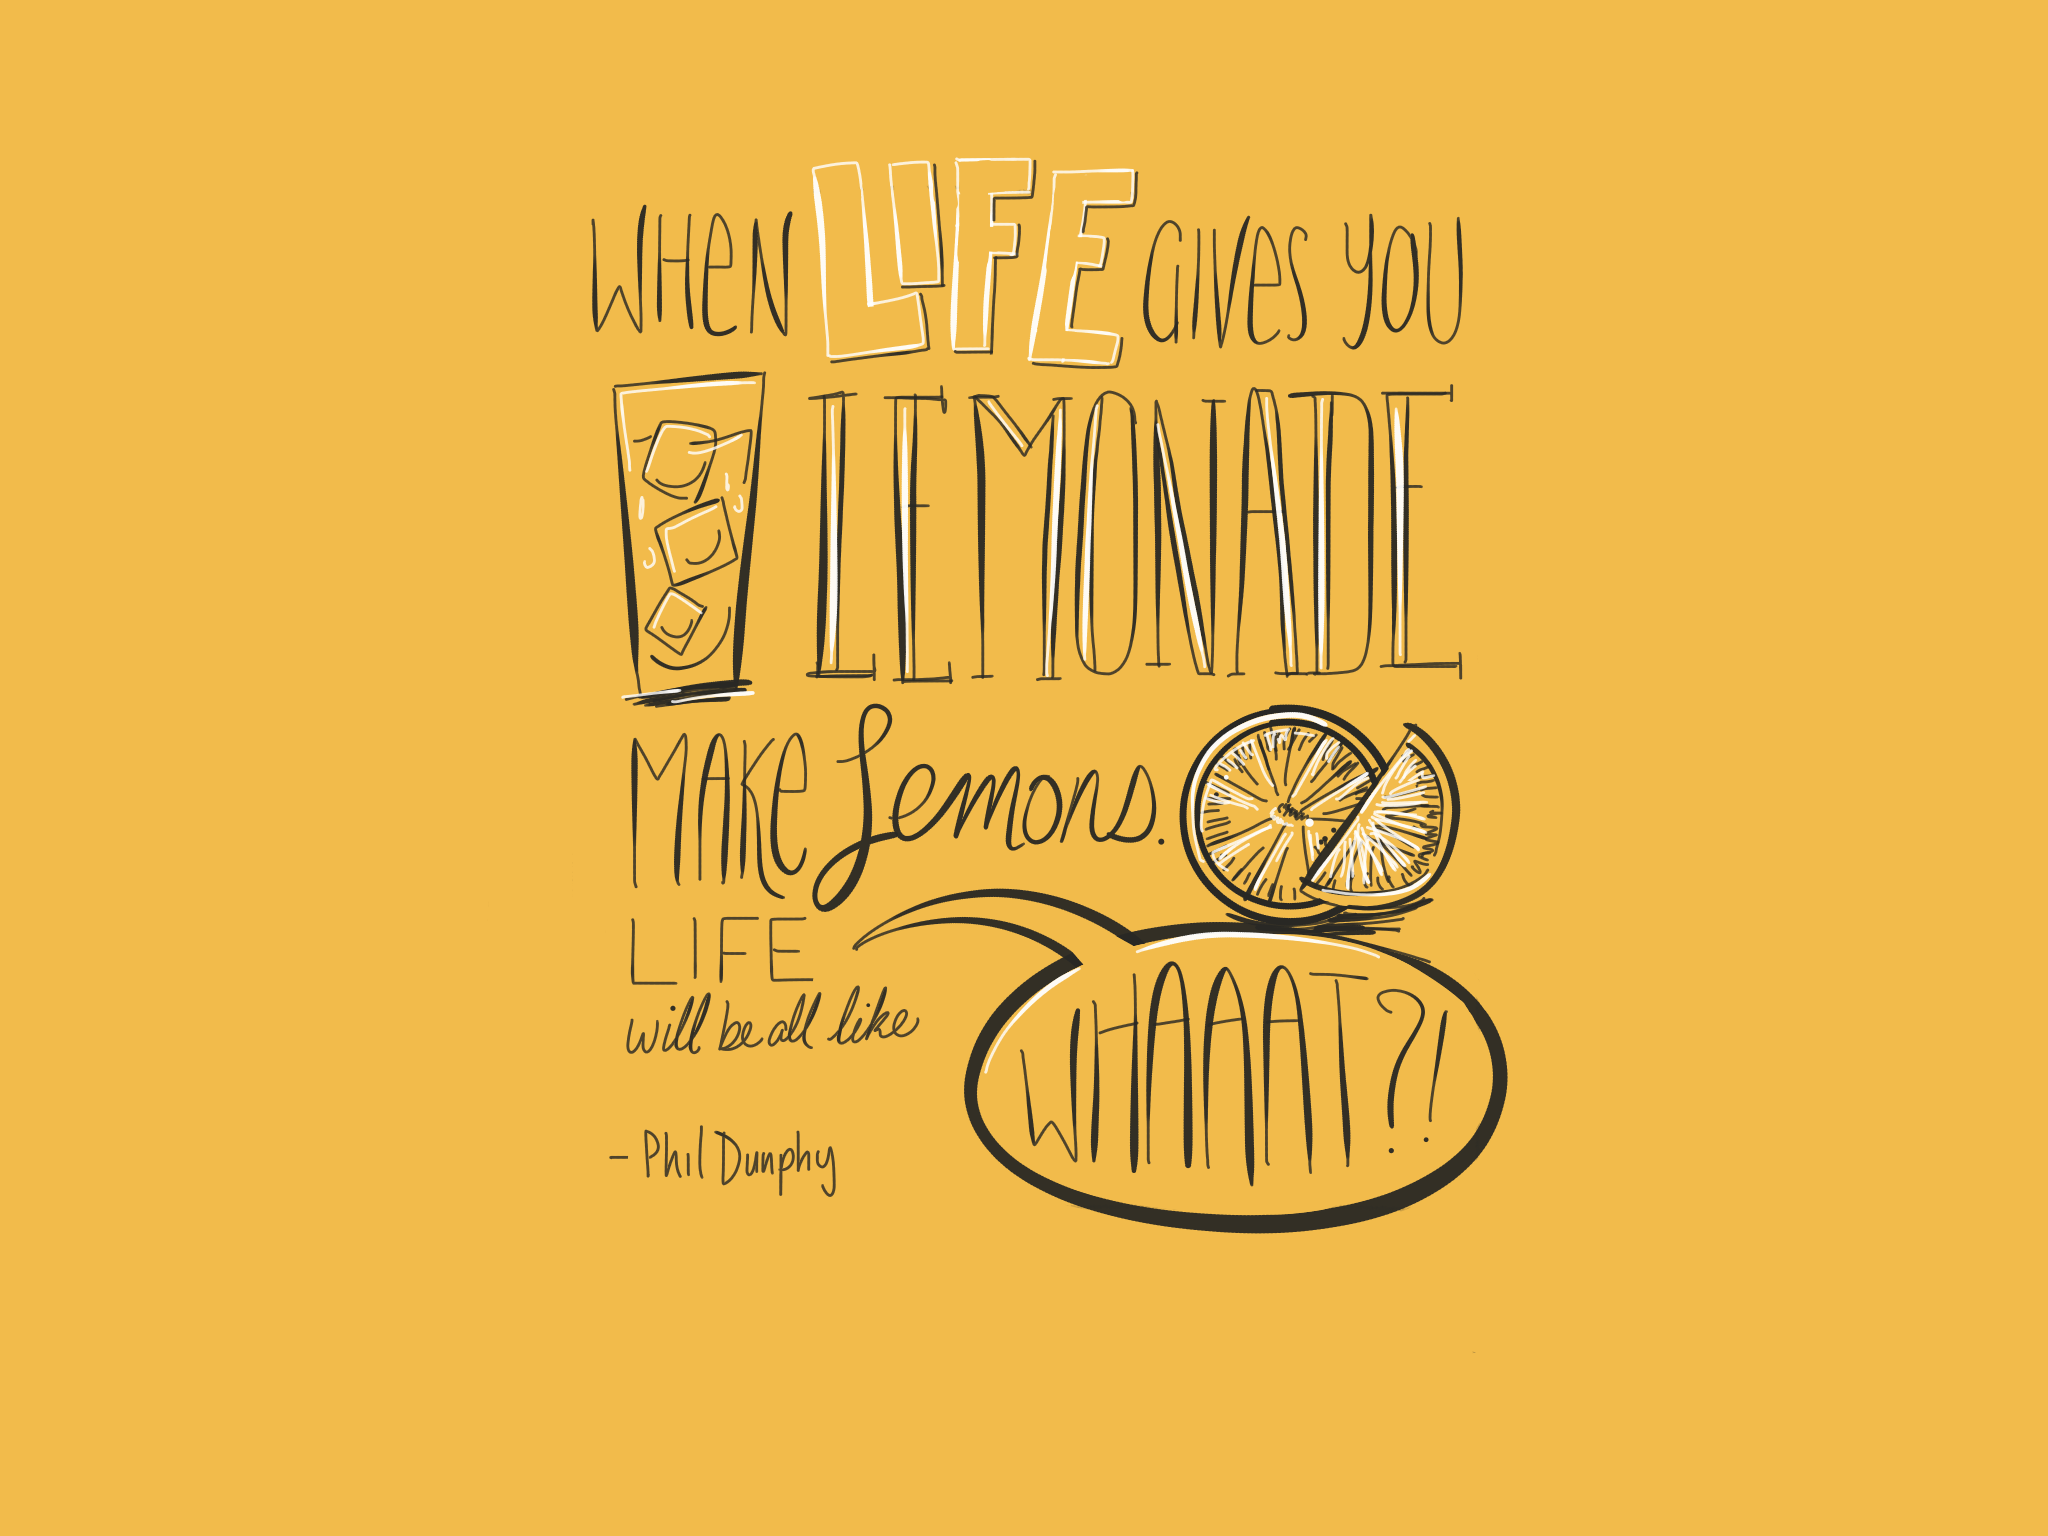 WHeN LIFE GIVeS YOU
LEMONADE
MAKe Lemons.
LIFE
will be all like
WHAAAT?!
- Phil Dunphy